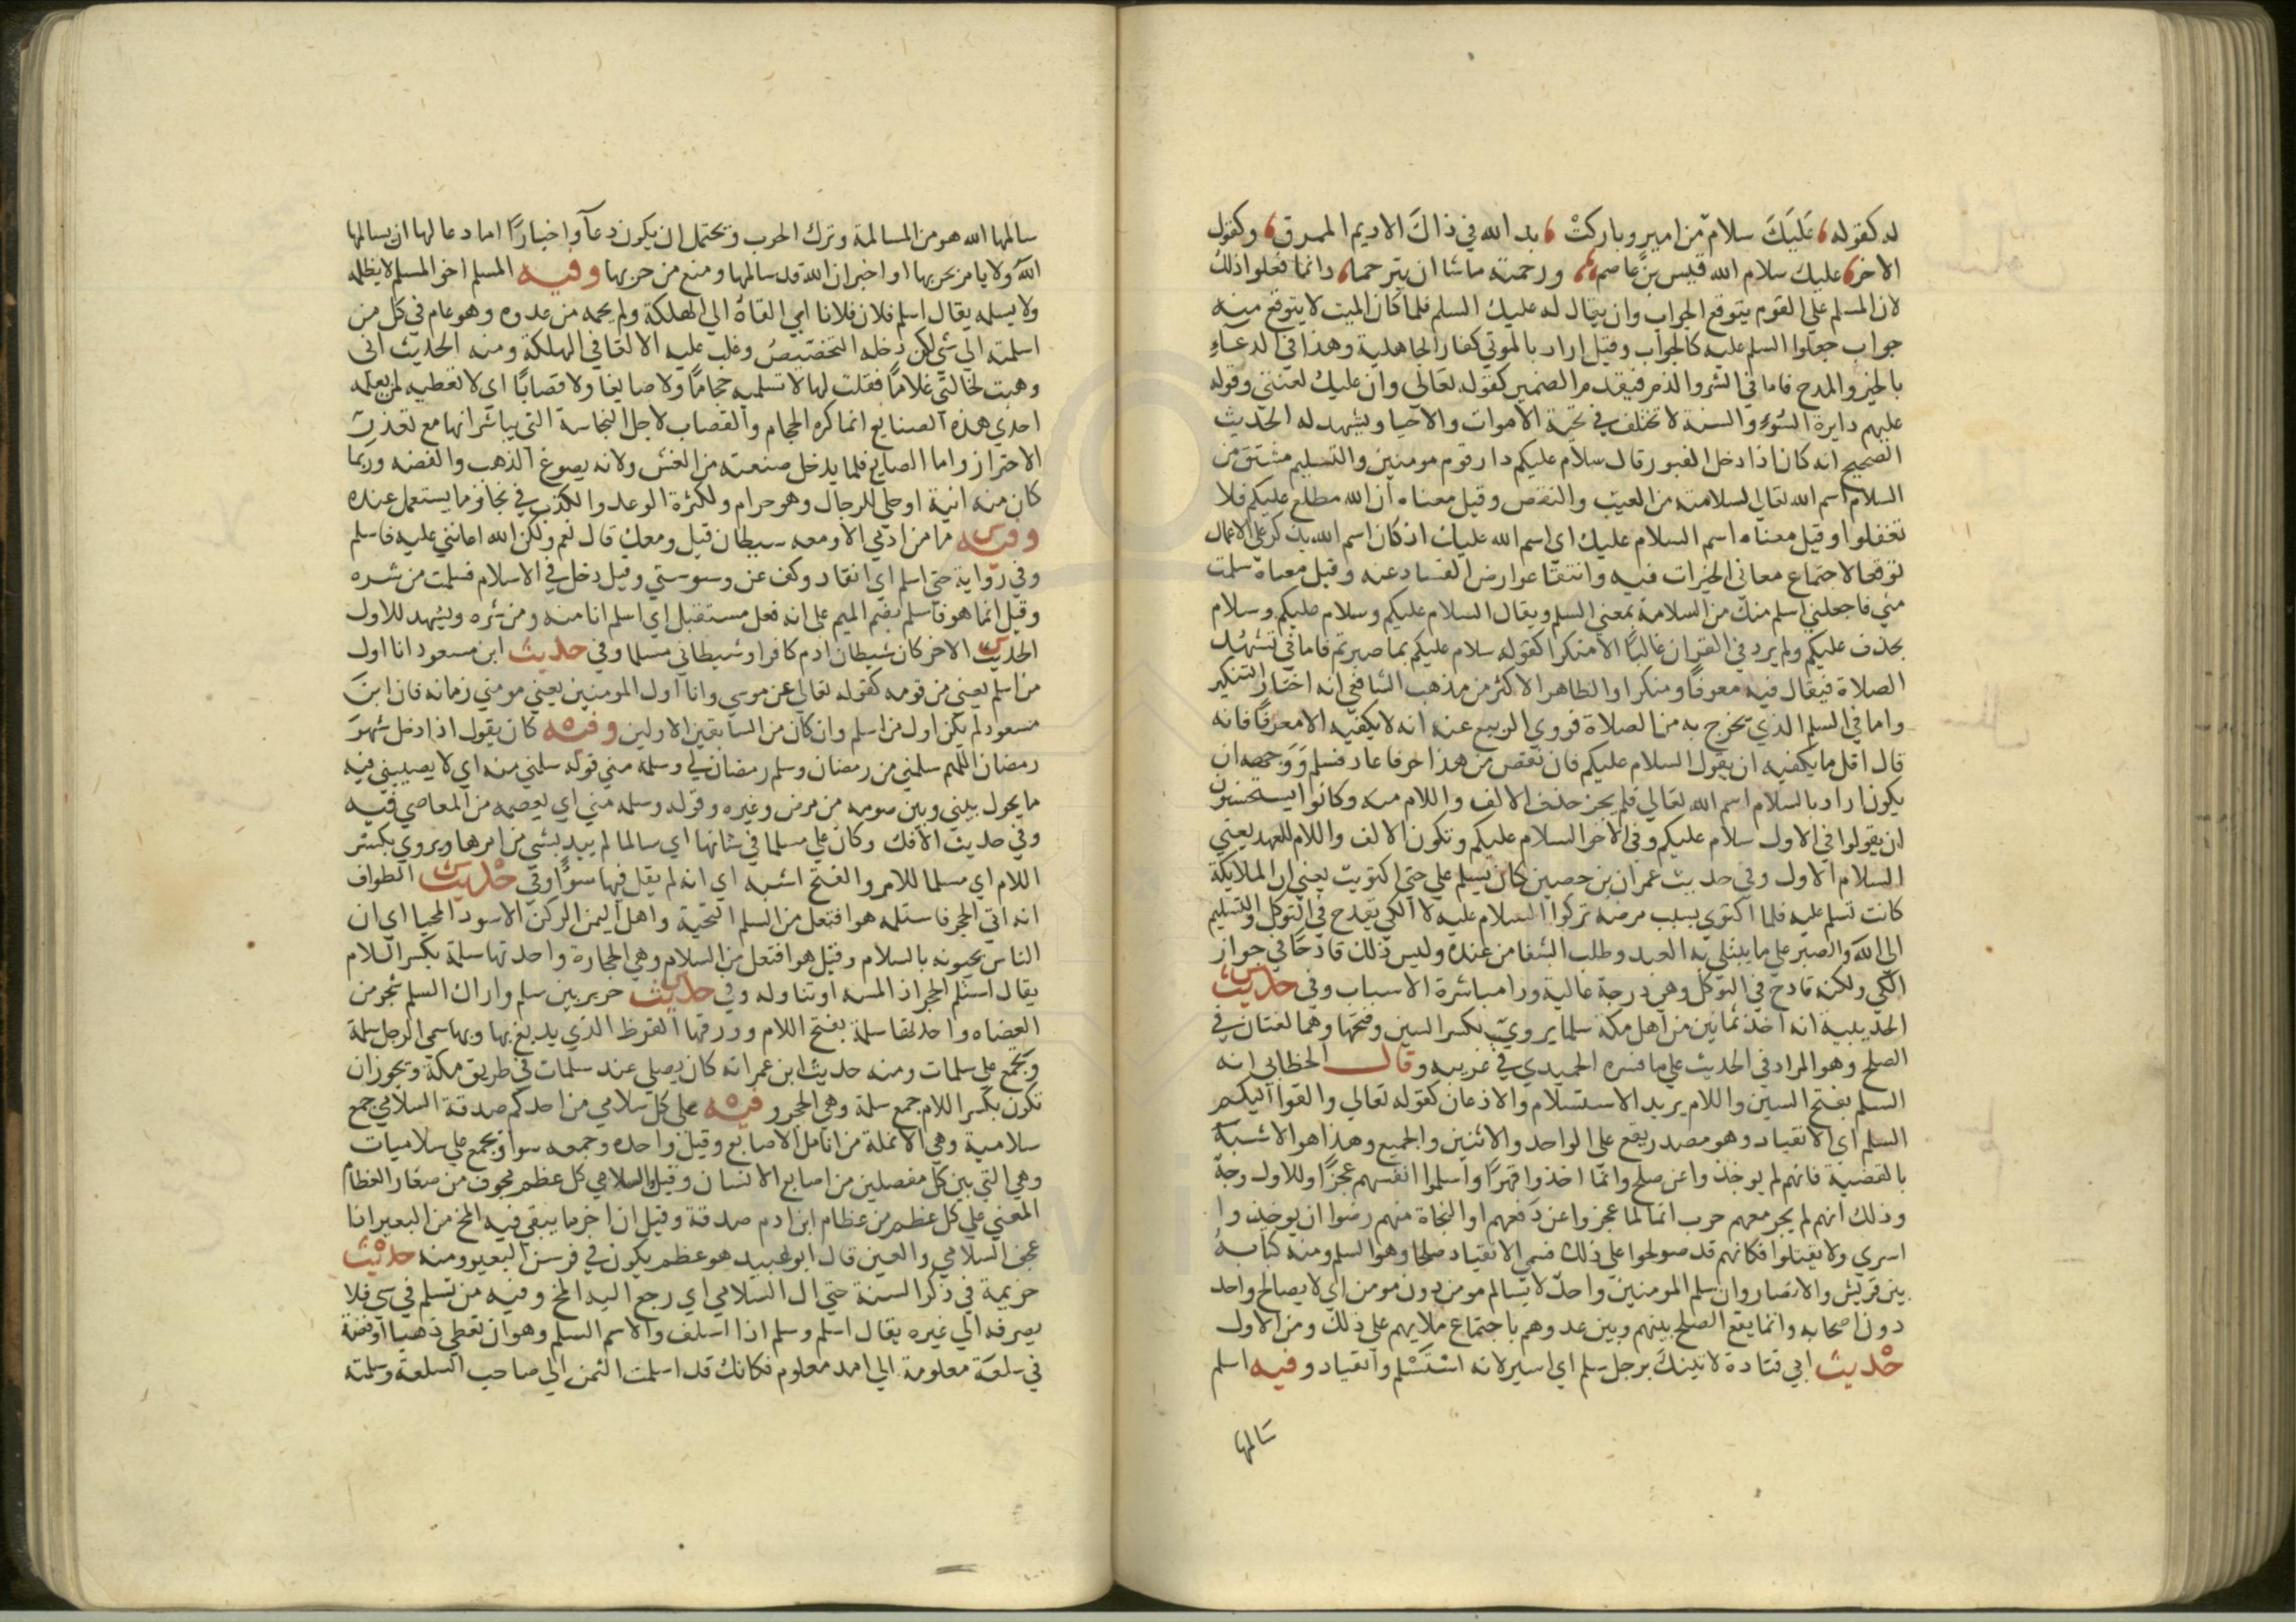 له كقوله عَلَيَكَ سلامٌ من اميرٍ وباركتْ يد الله في ذاكَ الاديم الممزق وكقول
الاخر عليك سلام الله قيس بنَ عاصم ورحمته ماشا ان يترحما وانما فعلوا ذلك
لان المسلم على القوم يتوقع الجواب وان يقال له عليك السلم فلما كان الميت لا يتوقع منه
جواب جعلوا السلم عليه كالجواب وقيل اراد بالموتي كفار الجاهلية وهذا في الدعاءِ
بالخير والمدح فاما في الشر والذم فيقدم الضمير كقوله تعالي وان عليك لعنتي وقوله
عليهم دايرة السَّوءِ والسنة لا تختلف في تحية الاموات والاحيا ويشهد له الحديث
الصحيح انه كان اذا دخل القبور قال سلام عليكم دار قوم مومنين والتسليم مشتق من
السلام اسم الله تعالي لسلامته من العيب والنقص وقيل معناه ان الله مطلع عليكم فلا
تغفلوا وقيل معناه اسم السلام عليك اي اسم الله عليك اذ كان اسم الله يذكر على الاعمال
توقعا لاجتماع معاني الخيرات فيه وانتفا عوارض الفساد عنه وقيل معناه سلمت
مني فاجعلني اسلم منك من السلامة بمعني السلم ويقال السلام عليكم وسلام عليكم وسلام
بحذف عليكم ولم يرد في القران غالبًا الا منكرا كقوله سلام عليكم بما صبرتم فاما في تشهد
الصلاة فيقال فيه معرفًا ومنكرا والظاهر الاكثر من مذهب الشافعي انه اختار التنكير
واما في السلم الذي يخرج به من الصلاة فروي الربيع عنه انه لا يكفيه الا معرفًا فانه
قال اقل ما يكفيه ان يقول السلام عليكم فان نقص من هذا حرفا عاد فسلم وَوَجهه ان
يكون اراد بالسلام اسم الله تعالي فلم يجز حذف الالف واللام منه وكانوا يستحسنون
ان يقولوا في الاول سلام عليكم وفي الاخر السلام عليكم وتكون الالف واللام للعهد يعني
السلام الاول وفي حديث عمران بن حصين كان يسلم علي حتي اكتويت يعني ان الملايكة
كانت تسلم عليه فلما اكتوي بسبب مرضه تركوا السلام عليه لان الكي يقدح في التوكل والتسليم
الي الله والصبر علي ما يبتلي به العبد وطلب الشفا من عنده وليس ذلك قادحًا في جواز
الكي ولكنه قادح في التوكل وهي درجة عالية ورا مباشرة الاسباب وفي حديث
الحديبية انه اخذ ثمانين من اهل مكة سلما يروي بكسر السين وفتحها وهما لغتان في
الصلح وهو المراد في الحديث علي ما فسره الحميدي في غريبه وقال الخطابي انه
السلم بفتح السين واللام يريد الاستسلام والاذعان كقوله تعالي والقوا اليكم
السلم اي الانقياد وهو مصدر يقع على الواحد والاثنين والجميع وهذا هو الاشبه
بالقضية فانهم لم يوخذوا عن صلح وانما اخذوا قهرًا واسلموا انفسهم عجزًا وللاول وجه
وذلك انهم لم يجر معهم حرب انما لما عجزوا عن دفعهم او النجاة منهم رضوا ان يوخذوا
اسري ولا يقتلوا فكانهم قد صولحوا على ذلك فسمي الانقياد صلحا وهو السلم ومنه كتابهُ
بين قريش والانصار وان سلم المومنين واحد لا يسالم مومن دون مومن اي لا يصالح واحد
دون اصحابه وانما يقع الصلح بينهم وبين عدوهم باجتماع ملايهم علي ذلك ومن الاول
حديث ابي قتادة لاتينك برجل سلم اي اسير لانه استسلم وانقياد وفيه اسلم
سالمها
سالمها الله هو من المسالمة وترك الحرب ويحتمل ان يكون دعآ واخبارًا اما دعا لها ان يسالمها
الله ولا يامر بحربها او اخبر ان الله قد سالمها ومنع من حربها وفيه المسلم اخو المسلم لا يظلمه
ولا يسلمه يقال اسلم فلان فلانا اي القاه الي الهلكة ولم يحمه من عدوه وهو عام في كل من
اسلمته الي شي لكن دخله التخصيص وغلب عليه الالقا في الهلكة ومنه الحديث اني
وهبت لخالتي غلامًا فقلت لها لا تسلميه حجامًا ولا صايغا ولا قصابًا اي لا تعطيه لمن يعلمه
احدي هذه الصنايع انما كره الحجام والقصاب لاجل النجاسة التي يباشرانها مع تعذر
الاحتراز واما الصايغ فلما يدخل صنعته من الغش ولانه يصوغ الذهب والفضه وربما
كان منه انية او حلي للرجال وهو حرام ولكثرة الوعد والكذب في نجاز ما يستعمل عنده
وفيه ما من ادمي الا ومعه شيطان قيل ومعك قال نعم ولكن الله اعانني عليه فاسلم
وفي رواية حتي اسلم اي انقاد وكف عن وسوستي وقيل دخل في الاسلام فسلمت من شره
وقيل انما هو فاسلم بضم الميم على انه فعل مستقبل اي اسلم انا منه ومن شره ويشهد للاول
الحديث الاخر كان شيطان ادم كافرا وشيطاني مسلما وفي حديث ابن مسعود انا اول
من اسلم يعني من قومه كقوله تعالي عن موسي وانا اول المومنين يعني مومني زمانه فان ابن
مسعود لم يكن اول من اسلم وان كان من السابقين الاولين وفيه كان يقول اذا دخل شهر
رمضان اللهم سلمني من رمضان وسلم رمضان لي وسلمه مني قوله سلمني منه اي لا يصيبني فيه
ما يحول بيني وبين صومه من مرض وغيره وقوله وسلمه مني اي يعصمه من المعاصي فيه
وفي حديث الافك وكان علي مسلما في شانها اي سالما لم يبد بشي من امرها ويروي بكسر
اللام اي مسلما للامر والفتح اشبه اي انه لم يقل فيها سوًا وفي حديث الطواف
انه اتي الحجر فاستلمه هو افتعل من السلم التحية واهل اليمن الركن الاسود المحيا اي ان
الناس يحيونه بالسلام وقيل هو افتعل من السلام وهي الحجارة واحدتها سلمة بكسر اللام
يقال استلم الحجر اذا لمسه او تناوله وفي حديث جرير بين سلم واراك السلم شجر من
العضاه واحدتها سلمة بفتح اللام وورقها القرظ الذي يدبغ بها وبها سمي الرجل سلمة
وتجمع علي سلمات ومنه حديث ابن عمر انه كان يصلي عند سلمات في طريق مكة ويجوز ان
تكون بكسر اللام جمع سلمة وهي الحجر وفيه على كل سلامي من احدكم صدقة السلامي جمع
سلامية وهي الانملة من انامل الاصابع وقيل واحده وجمعه سوا ويجمع علي سلاميات
وهي التي بين كل مفصلين من اصابع الانسان وقيل السلامي كل عظم مجوف من صغار العظام
المعني علي كل عظم من عظام ابن ادم صدقة وقيل ان اخر ما يبقي فيه المخ من البعير اذا
عجف السلامي والعين قال ابو عبيد هو عظم يكون في فرسن البعير ومنه حديث
خزيمة في ذكر السنة حتي ال السلامي اي رجع اليه المخ وفيه من تسلم في شي فلا
يصرفه الي غيره يقال اسلم وسلم اذا اسلف والاسم السلم وهو ان تعطي ذهبا او فضة
في سلعة معلومة الي امد معلوم فكانك قد اسلمت الثمن الي صاحب السلعة وسلمته